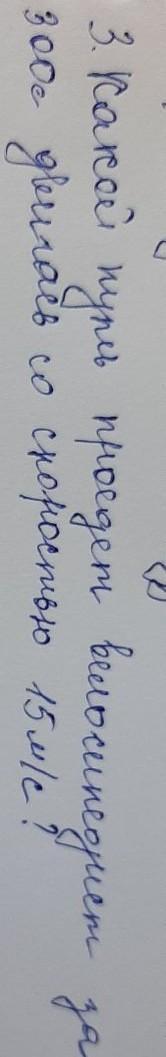 3. Какой путь проедет велосипедист за
300с двигаясь со скоростью 15 м/с?